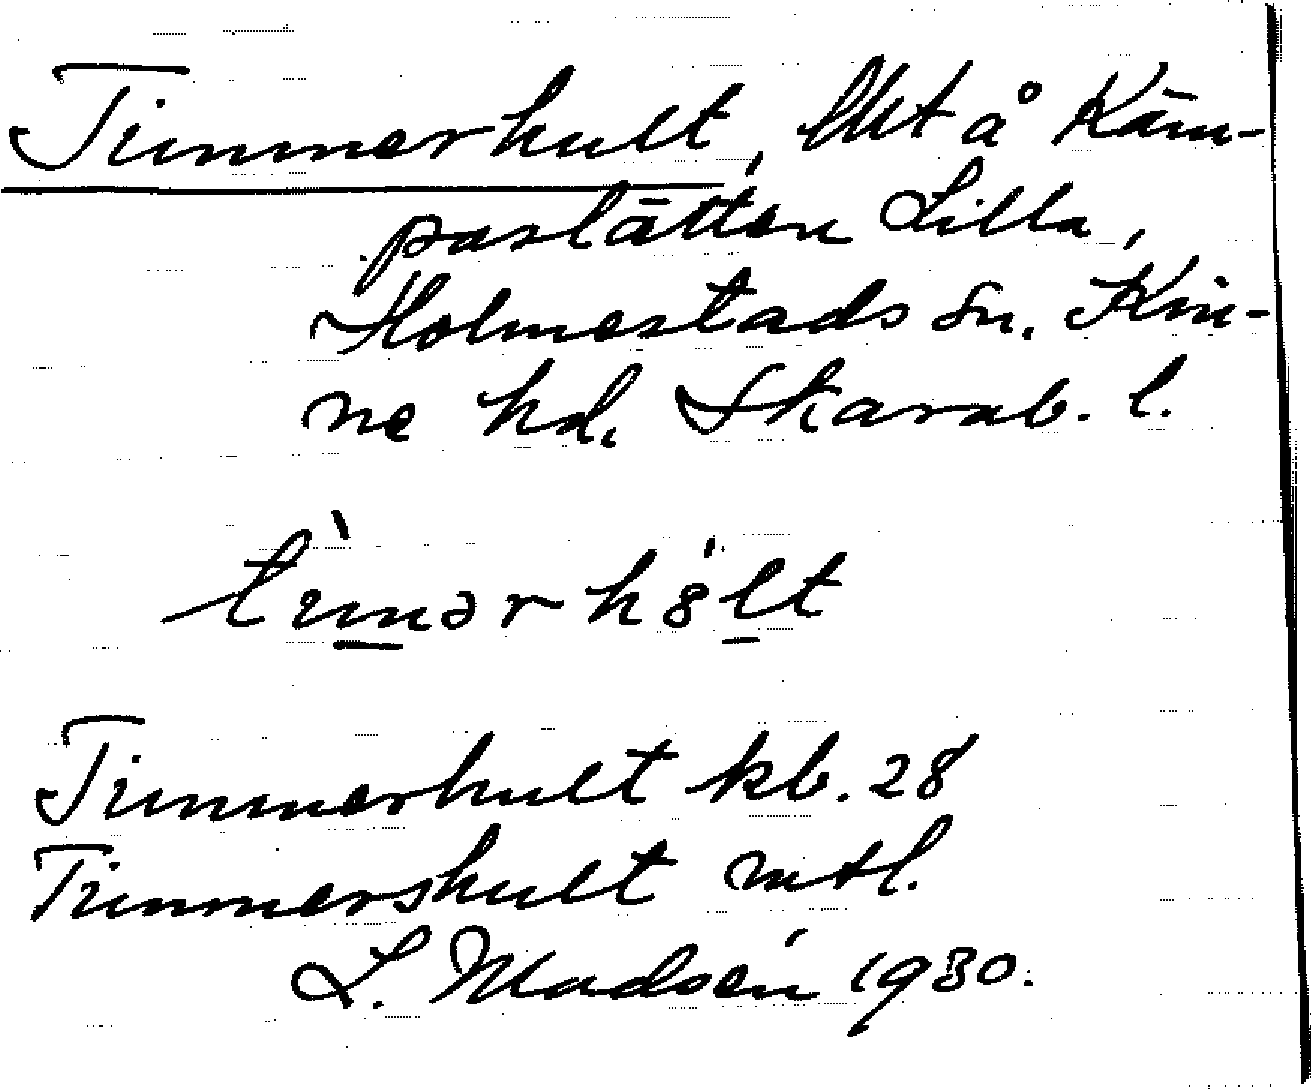 Timmerhult, lht å Käm-
paslätten Lilla,
Holmestads sn. Kin-
ne hd. Skarab. l.
tìmərhó̤lt
Timmerhult kb. 28
Timmershult mtl.
L. Madsén 1930.